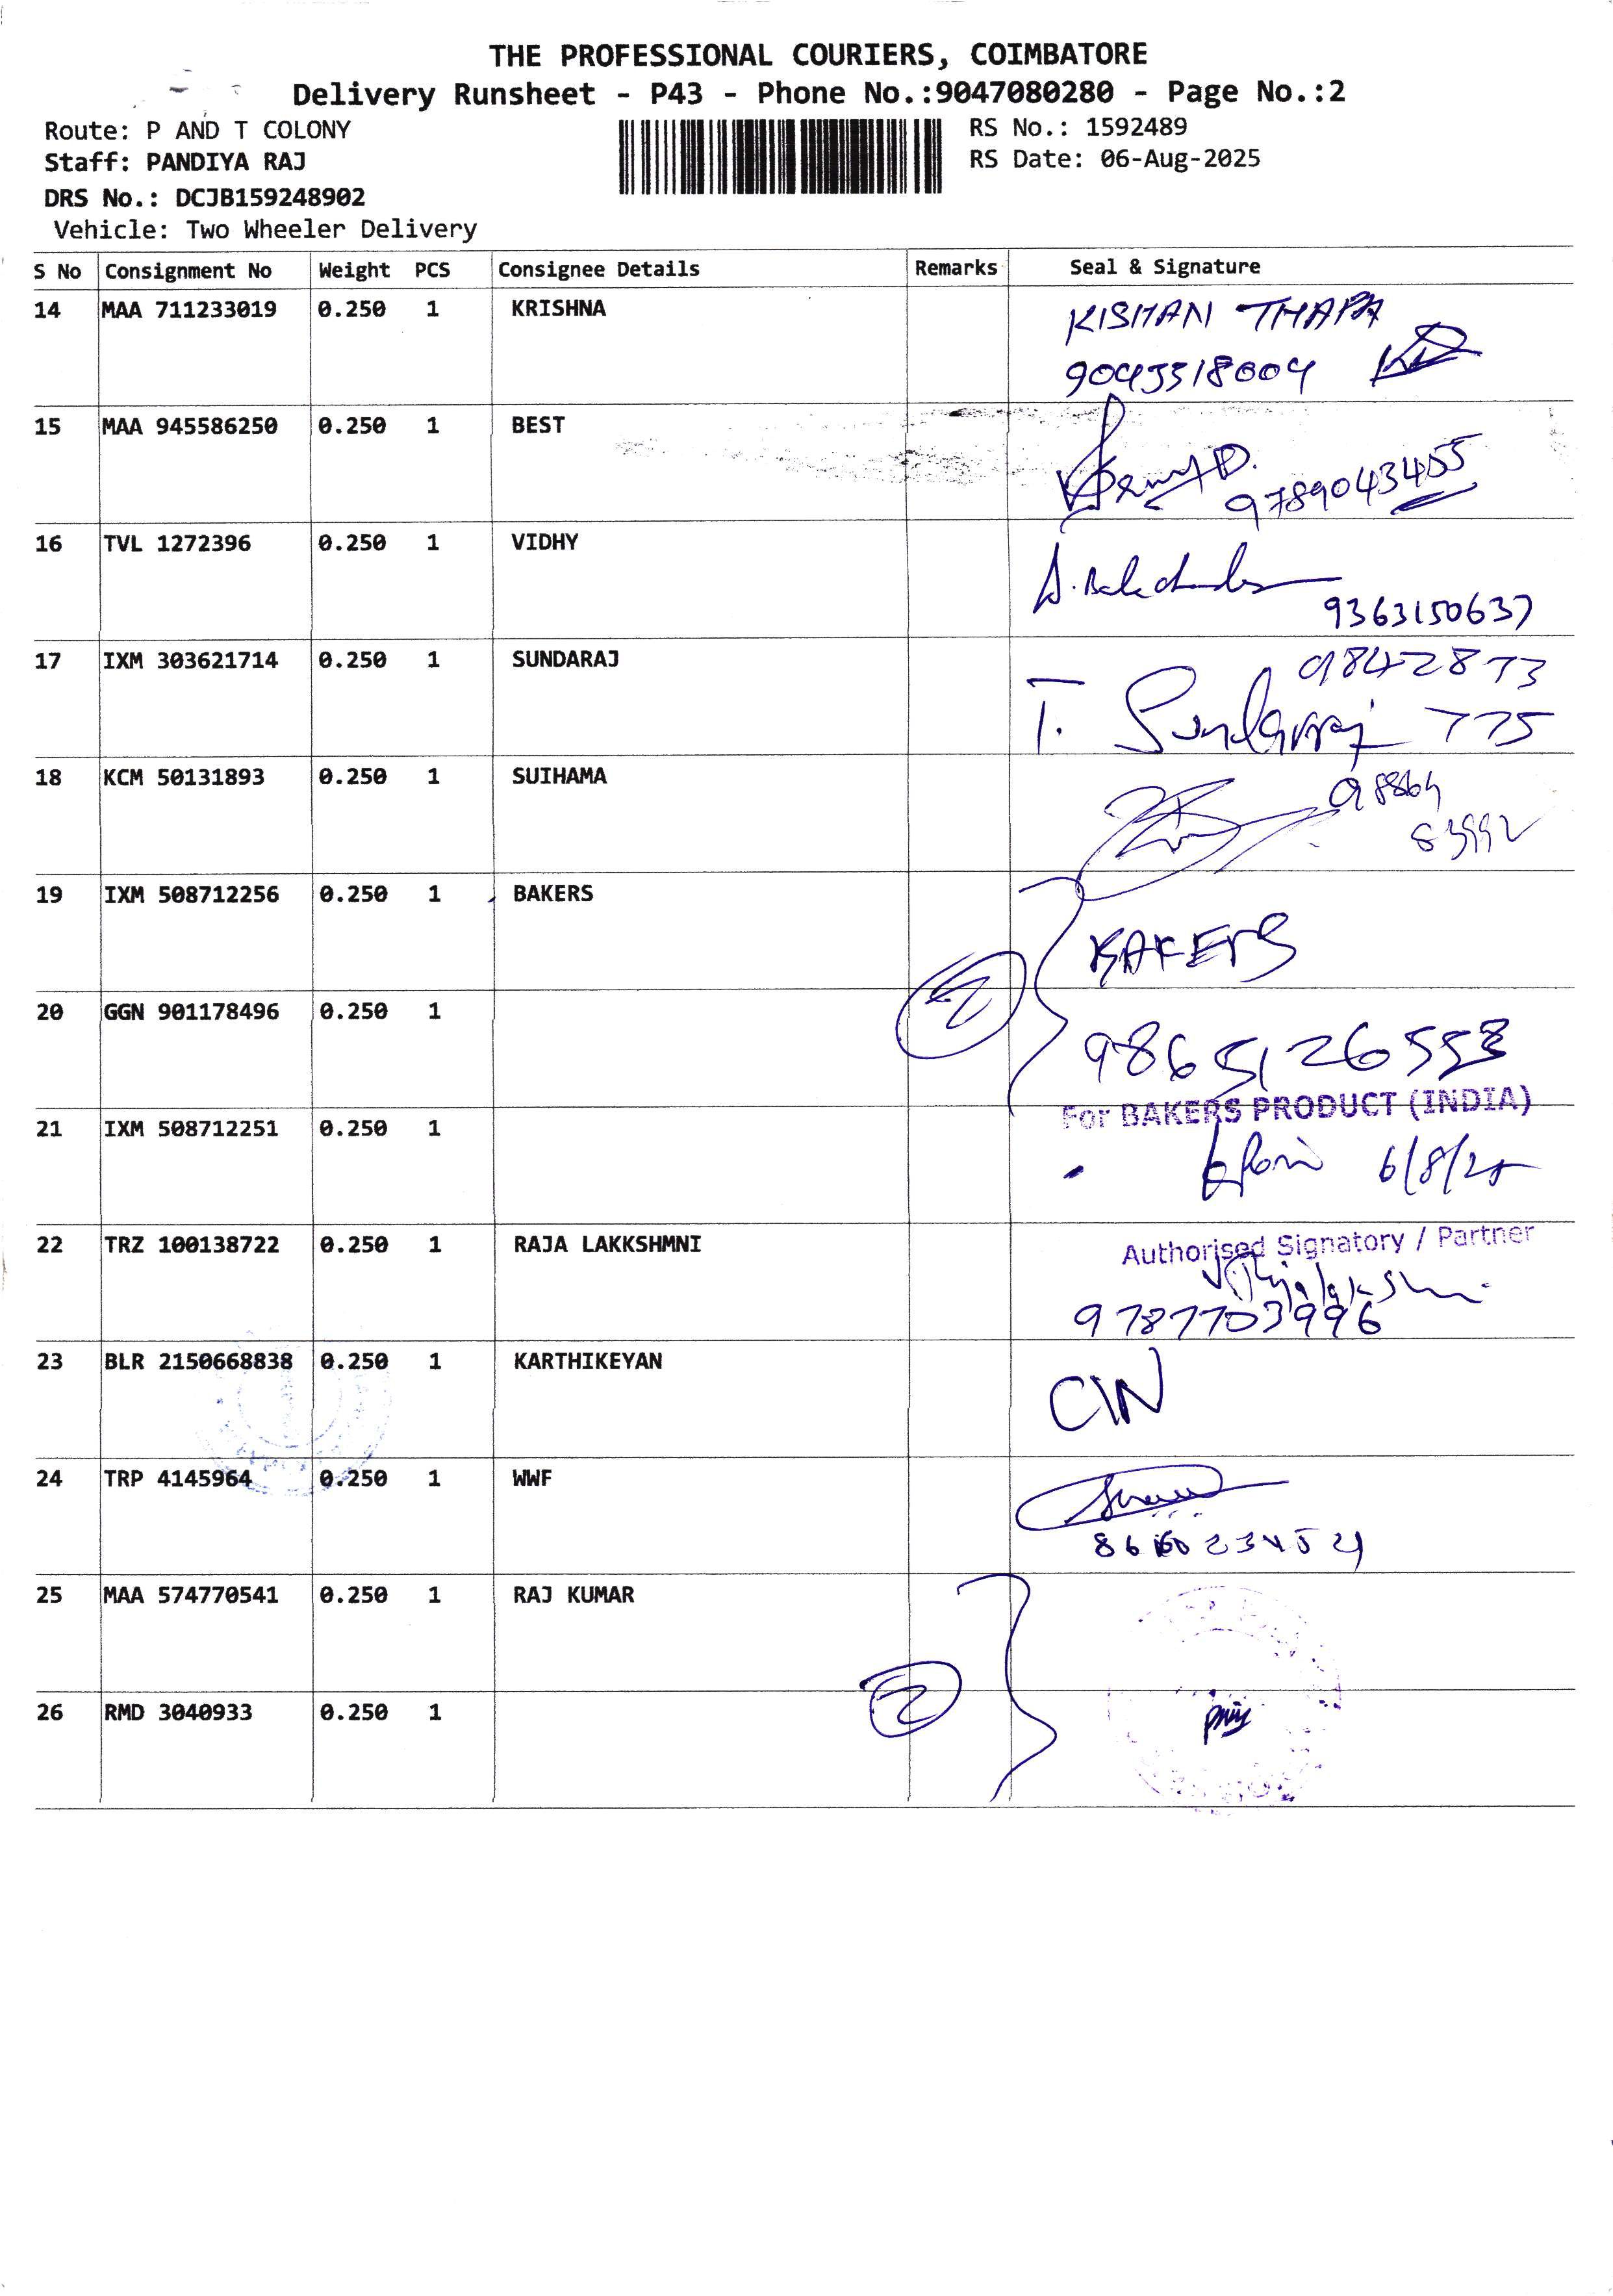 THE PROFESSIONAL COURIERS, COIMBATORE
Delivery Runsheet - P43 - Phone No.:9047080280 - Page No.:2
Route: P AND T COLONY
RS No.: 1592489
Staff: PANDIYA RAJ
RS Date: 06-Aug-2025
DRS No.: DCJB159248902
Vehicle: Two Wheeler Delivery
S No Consignment No Weight PCS Consignee Details Remarks Seal & Signature
14 MAA 711233019 0.250 1 KRISHNA
KISHAN THAPA
15 MAA 945586250 0.250 1 BEST
9789043455
16 TVL 1272396 0.250 1 VIDHY
9363150637
17 IXM 303621714 0.250 1 SUNDARAJ
9842873
T. Sundarraj 775
18 KCM 50131893 0.250 1 SUIHAMA
19 IXM 508712256 0.250 1 BAKERS
BAKERS
2
20 GGN 901178496 0.250 1
For BAKERS PRODUCT (INDIA)
21 IXM 508712251 0.250 1
6/8/25
22 TRZ 100138722 0.250 1 RAJA LAKKSHMNI
Authorised Signatory / Partner
9787703996
23 BLR 2150668838 0.250 1 KARTHIKEYAN
24 TRP 4145964 0.250 1 WWF
25 MAA 574770541 0.250 1 RAJ KUMAR
2
26 RMD 3040933 0.250 1